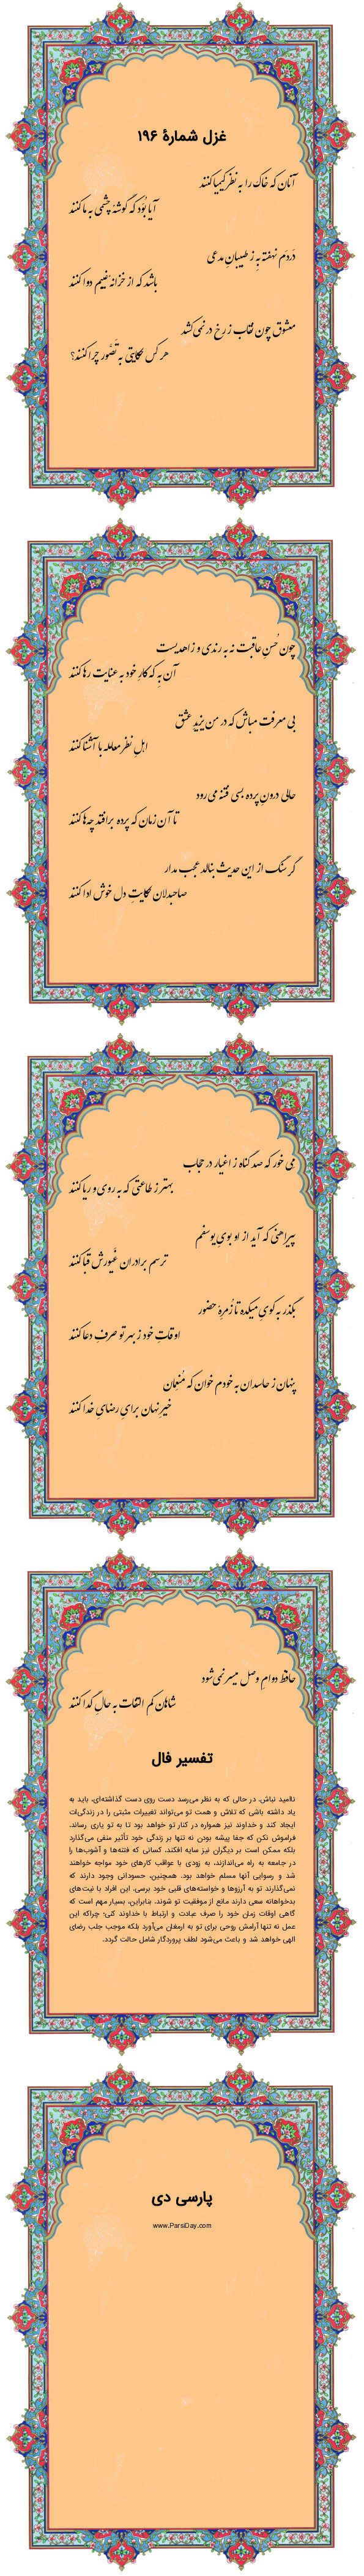 غزل شمارهٔ ۱۹۶
آنان که خاک را به نظر کیمیا کنند
آیا بُوَد که گوشهٔ چشمی به ما کنند
دَردَم نهفته بِه ز طبیبانِ مدعی
باشد که از خزانهٔ غیبم دوا کنند
معشوق چون نقاب ز رخ در نمی‌کشد
هر کس حکایتی به تَصَّور چرا کنند؟
چون حُسنِ عاقبت نه به رندی و زاهدیست
آن بِه که کارِ خود به عنایت رها کنند
بی معرفت مباش که در من یزیدِ عشق
اهلِ نظر معامله با آشنا کنند
حالی درونِ پرده بسی فتنه می‌رود
تا آن زمان که پرده برافتد چه‌ها کنند
گر سنگ از این حدیث بنالد عجب مدار
صاحبدلان حکایتِ دل خوش ادا کنند
می خور که صد گناه ز اغیار در حجاب
بهتر ز طاعتی که به روی و ریا کنند
پیراهنی که آید از او بویِ یوسفم
ترسم برادران غَیورش قبا کنند
بگذر به کویِ میکده تا زُمرهٔ حضور
اوقاتِ خود ز بهر تو صرفِ دعا کنند
پنهان ز حاسدان به خودم خوان که مُنعِمان
خیرِ نهان برایِ رضایِ خدا کنند
حافظ دوامِ وصل میسر نمی‌شود
شاهان کم التفات به حالِ گدا کنند
تفسیر فال
ناامید نباش. در حالی که به نظر می‌رسد دست روی دست گذاشته‌ای، باید به
یاد داشته باشی که تلاش و همت تو می‌تواند تغییرات مثبتی را در زندگی‌ات
ایجاد کند و خداوند نیز همواره در کنار تو خواهد بود تا به تو یاری رساند.
فراموش نکن که جفا پیشه بودن نه تنها بر زندگی خود تأثیر منفی می‌گذارد
بلکه ممکن است بر دیگران نیز سایه افکند. کسانی که فتنه‌ها و آشوب‌ها را
در جامعه به راه می‌اندازند، به زودی با عواقب کارهای خود مواجه خواهند
شد و رسوایی آنها مسلم خواهد بود. همچنین، حسودانی وجود دارند که
نمی‌گذارند تو به آرزوها و خواسته‌های قلبی خود برسی. این افراد با نیت‌های
بدخواهانه سعی دارند مانع از موفقیت تو شوند. بنابراین، بسیار مهم است که
گاهی اوقات زمان خود را صرف عبادت و ارتباط با خداوند کنی؛ چراکه این
عمل نه تنها آرامش روحی برای تو به ارمغان می‌آورد بلکه موجب جلب رضای
الهی خواهد شد و باعث می‌شود لطف پروردگار شامل حالت گردد.
پارسی دی
www.ParsiDay.com